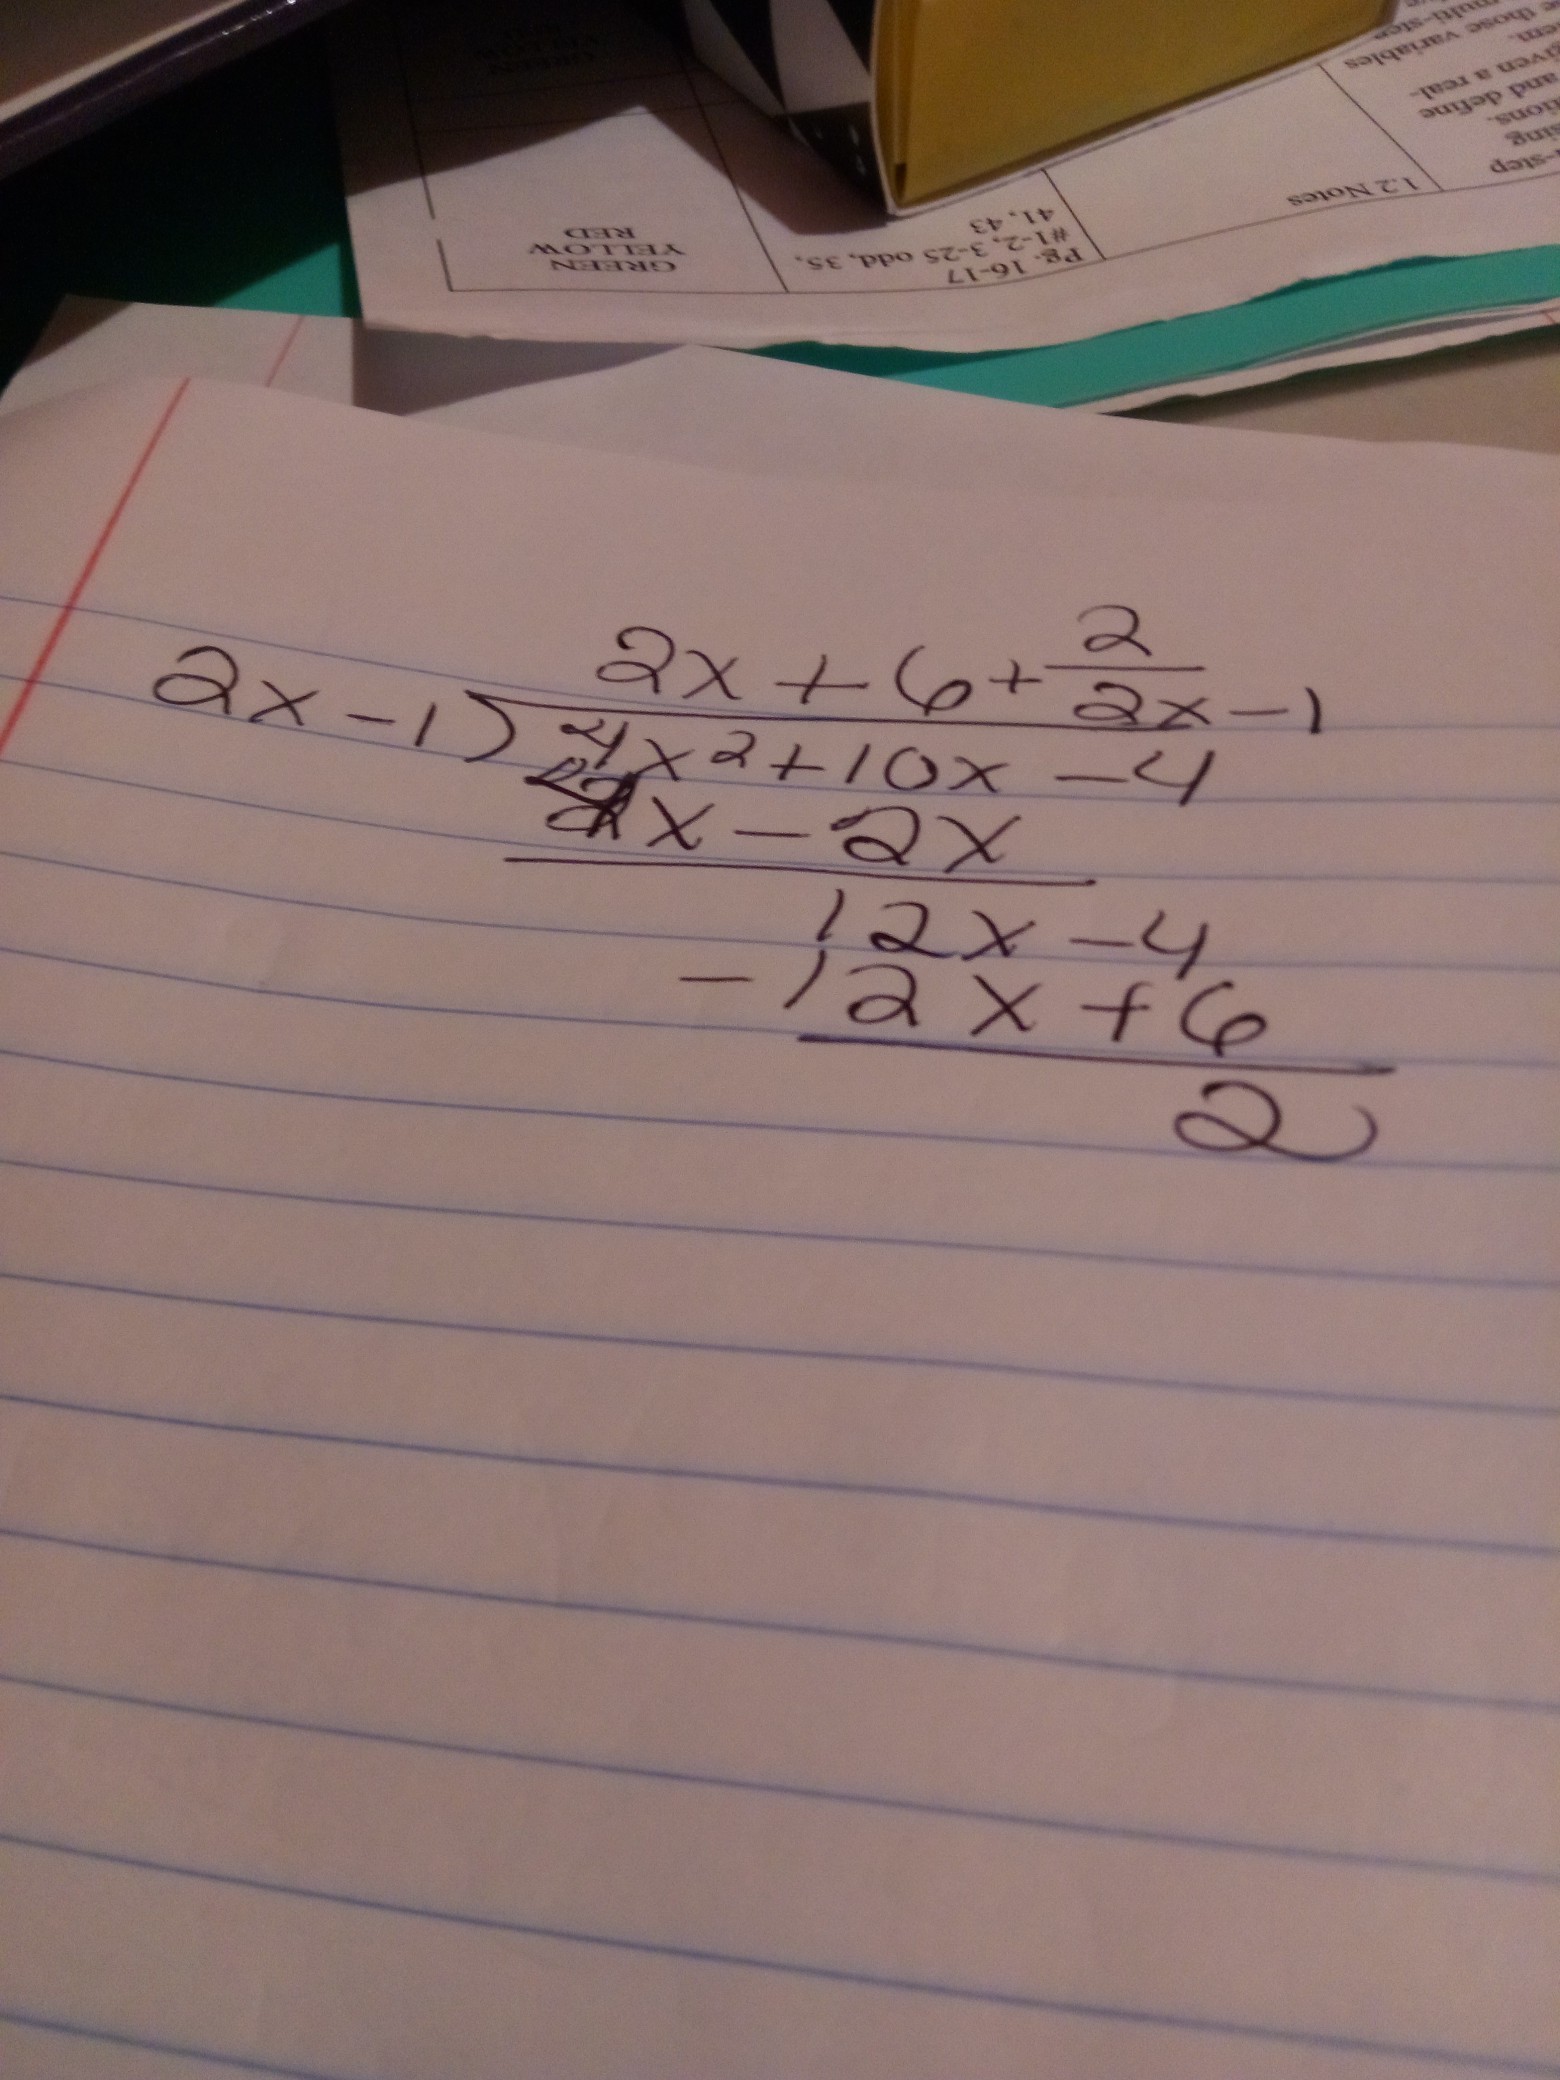 multi-step
those variables
em.
given a real-
and define
tions.
sing
-step
1.2 Notes
Pg. 16-17
#1-2, 3-25 odd, 35,
41, 43
GREEN
YELLOW
RED
GREEN
YELLOW
2x + 6 + 2/(2x - 1)
2x - 1) 4x² + 10x - 4
4x - 2x
12x - 4
- 12x + 6
2